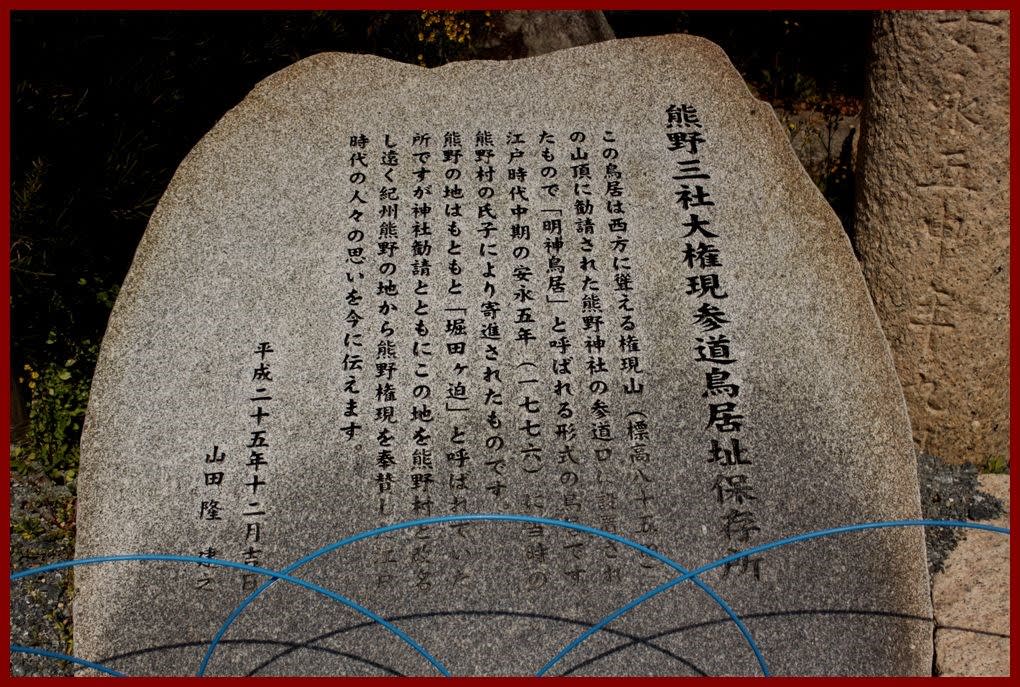 熊野三社大権現参道鳥居址保存所
この鳥居は西方に聳える権現山（標高八十五
の山頂に勧請された熊野神社の参道口に設置され
たもので「明神鳥居」と呼ばれる形式の鳥居です
江戸時代中期の安永五年（一七七六）に当時の
熊野村の氏子により寄進されたものです
熊野の地はもともと「堀田ヶ迫」と呼ばれていた
所ですが神社勧請とともにこの地を熊野村と改名
し遠く紀州熊野の地から熊野権現を奉賛した江戸
時代の人々の思いを今に伝えます。
平成二十五年十二月吉日
山田隆 建之